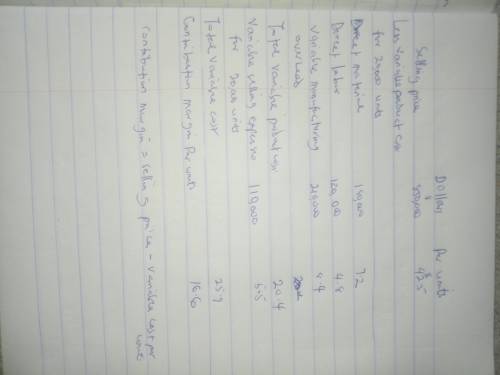 Dollars Per units
$ $
Selling price 850,000 42.5
Less Variable product cost
for 20,000 units
Direct materials 7.2
Direct labor 120,000 4.8
Variable manufacturing 210,000 8.4
overhead
Total variable product cost 20.4
Variable selling expenses 110,000 5.5
for 20,000 units
Total variable cost 25.9
Contribution margin per units 16.6
contribution margin = selling price - variable cost per
units